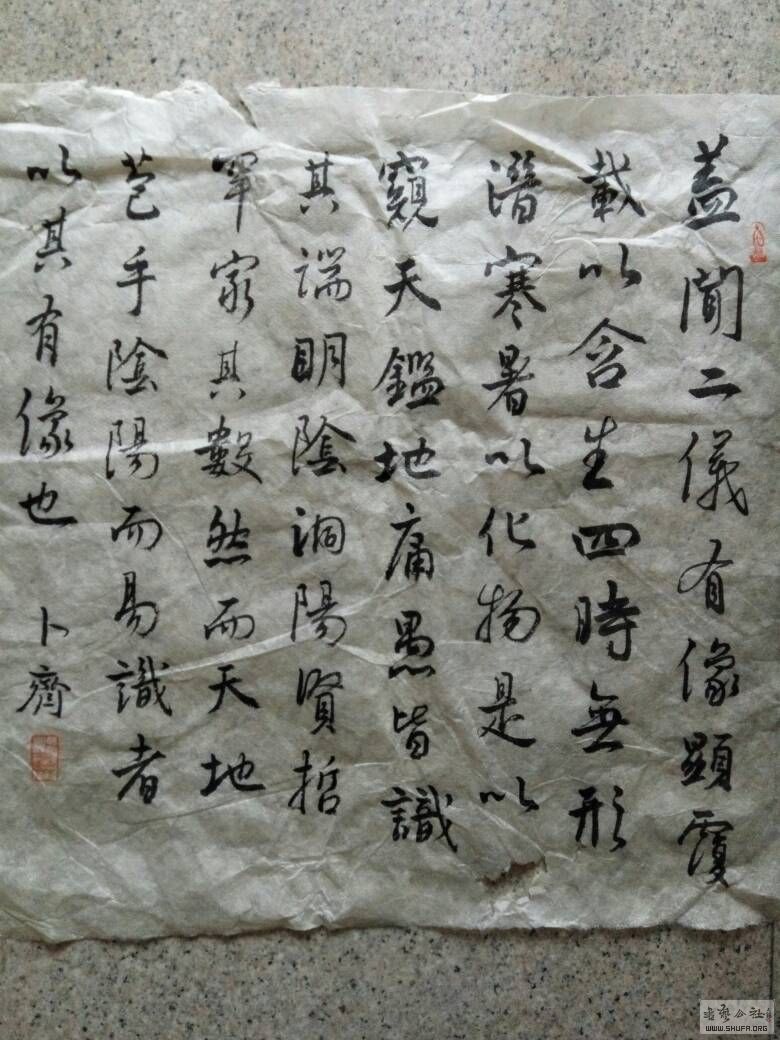 蓋聞二儀有像顯覆
載以含生四時無形
潛寒暑以化物是以
窺天鑑地庸愚皆識
其端明陰洞陽賢哲
罕窮其數然而天地
苞乎陰陽而易識者
以其有像也
卜齋
書藝公社
WWW.SHUFA.ORG